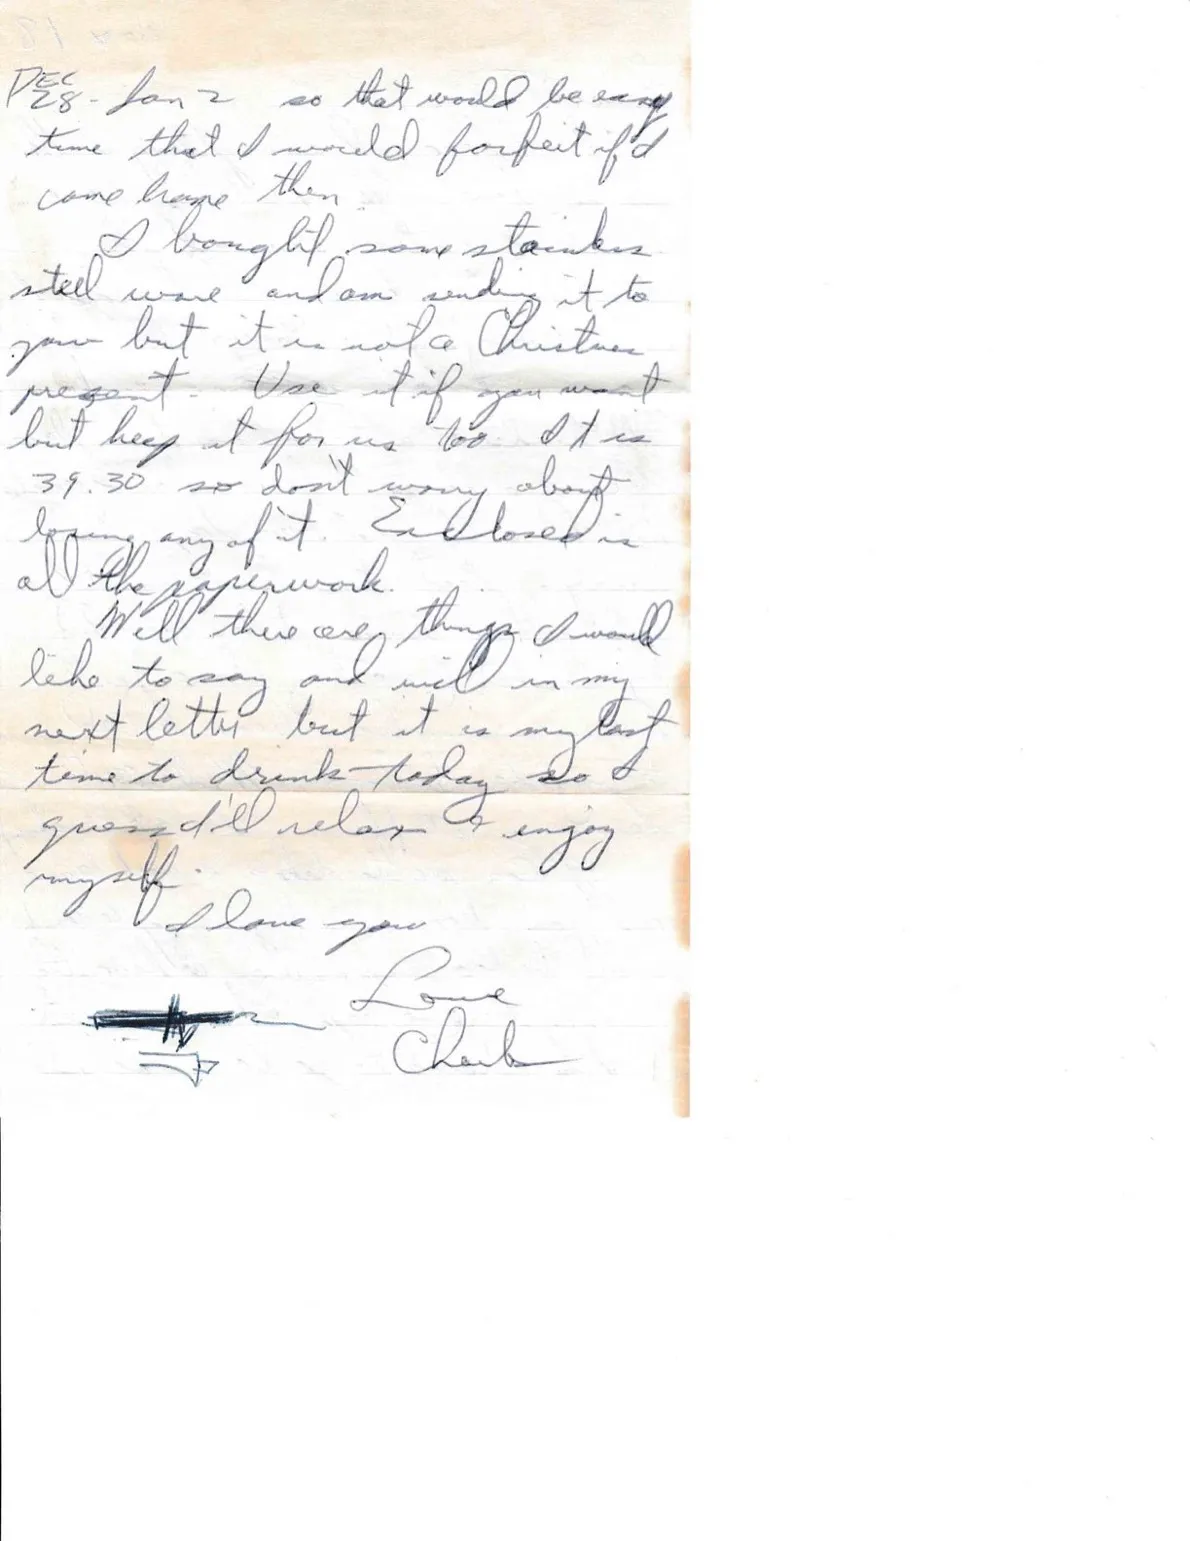 DEC
28 - Jan 2 so that would be easy
time that I would forfeit if I'd
come home then.
I bought some stainless
steel ware and am sending it to
you but it is not a Christmas
present. Use it if you want
but keep it for us too. It is
39.30 so don't worry about
losing any of it. Enclosed is
all the paperwork.
Well there are things I would
like to say and will in my
next letter but it is my last
time to drink today so I
guess I'll relax & enjoy
myself.
I love you
Love